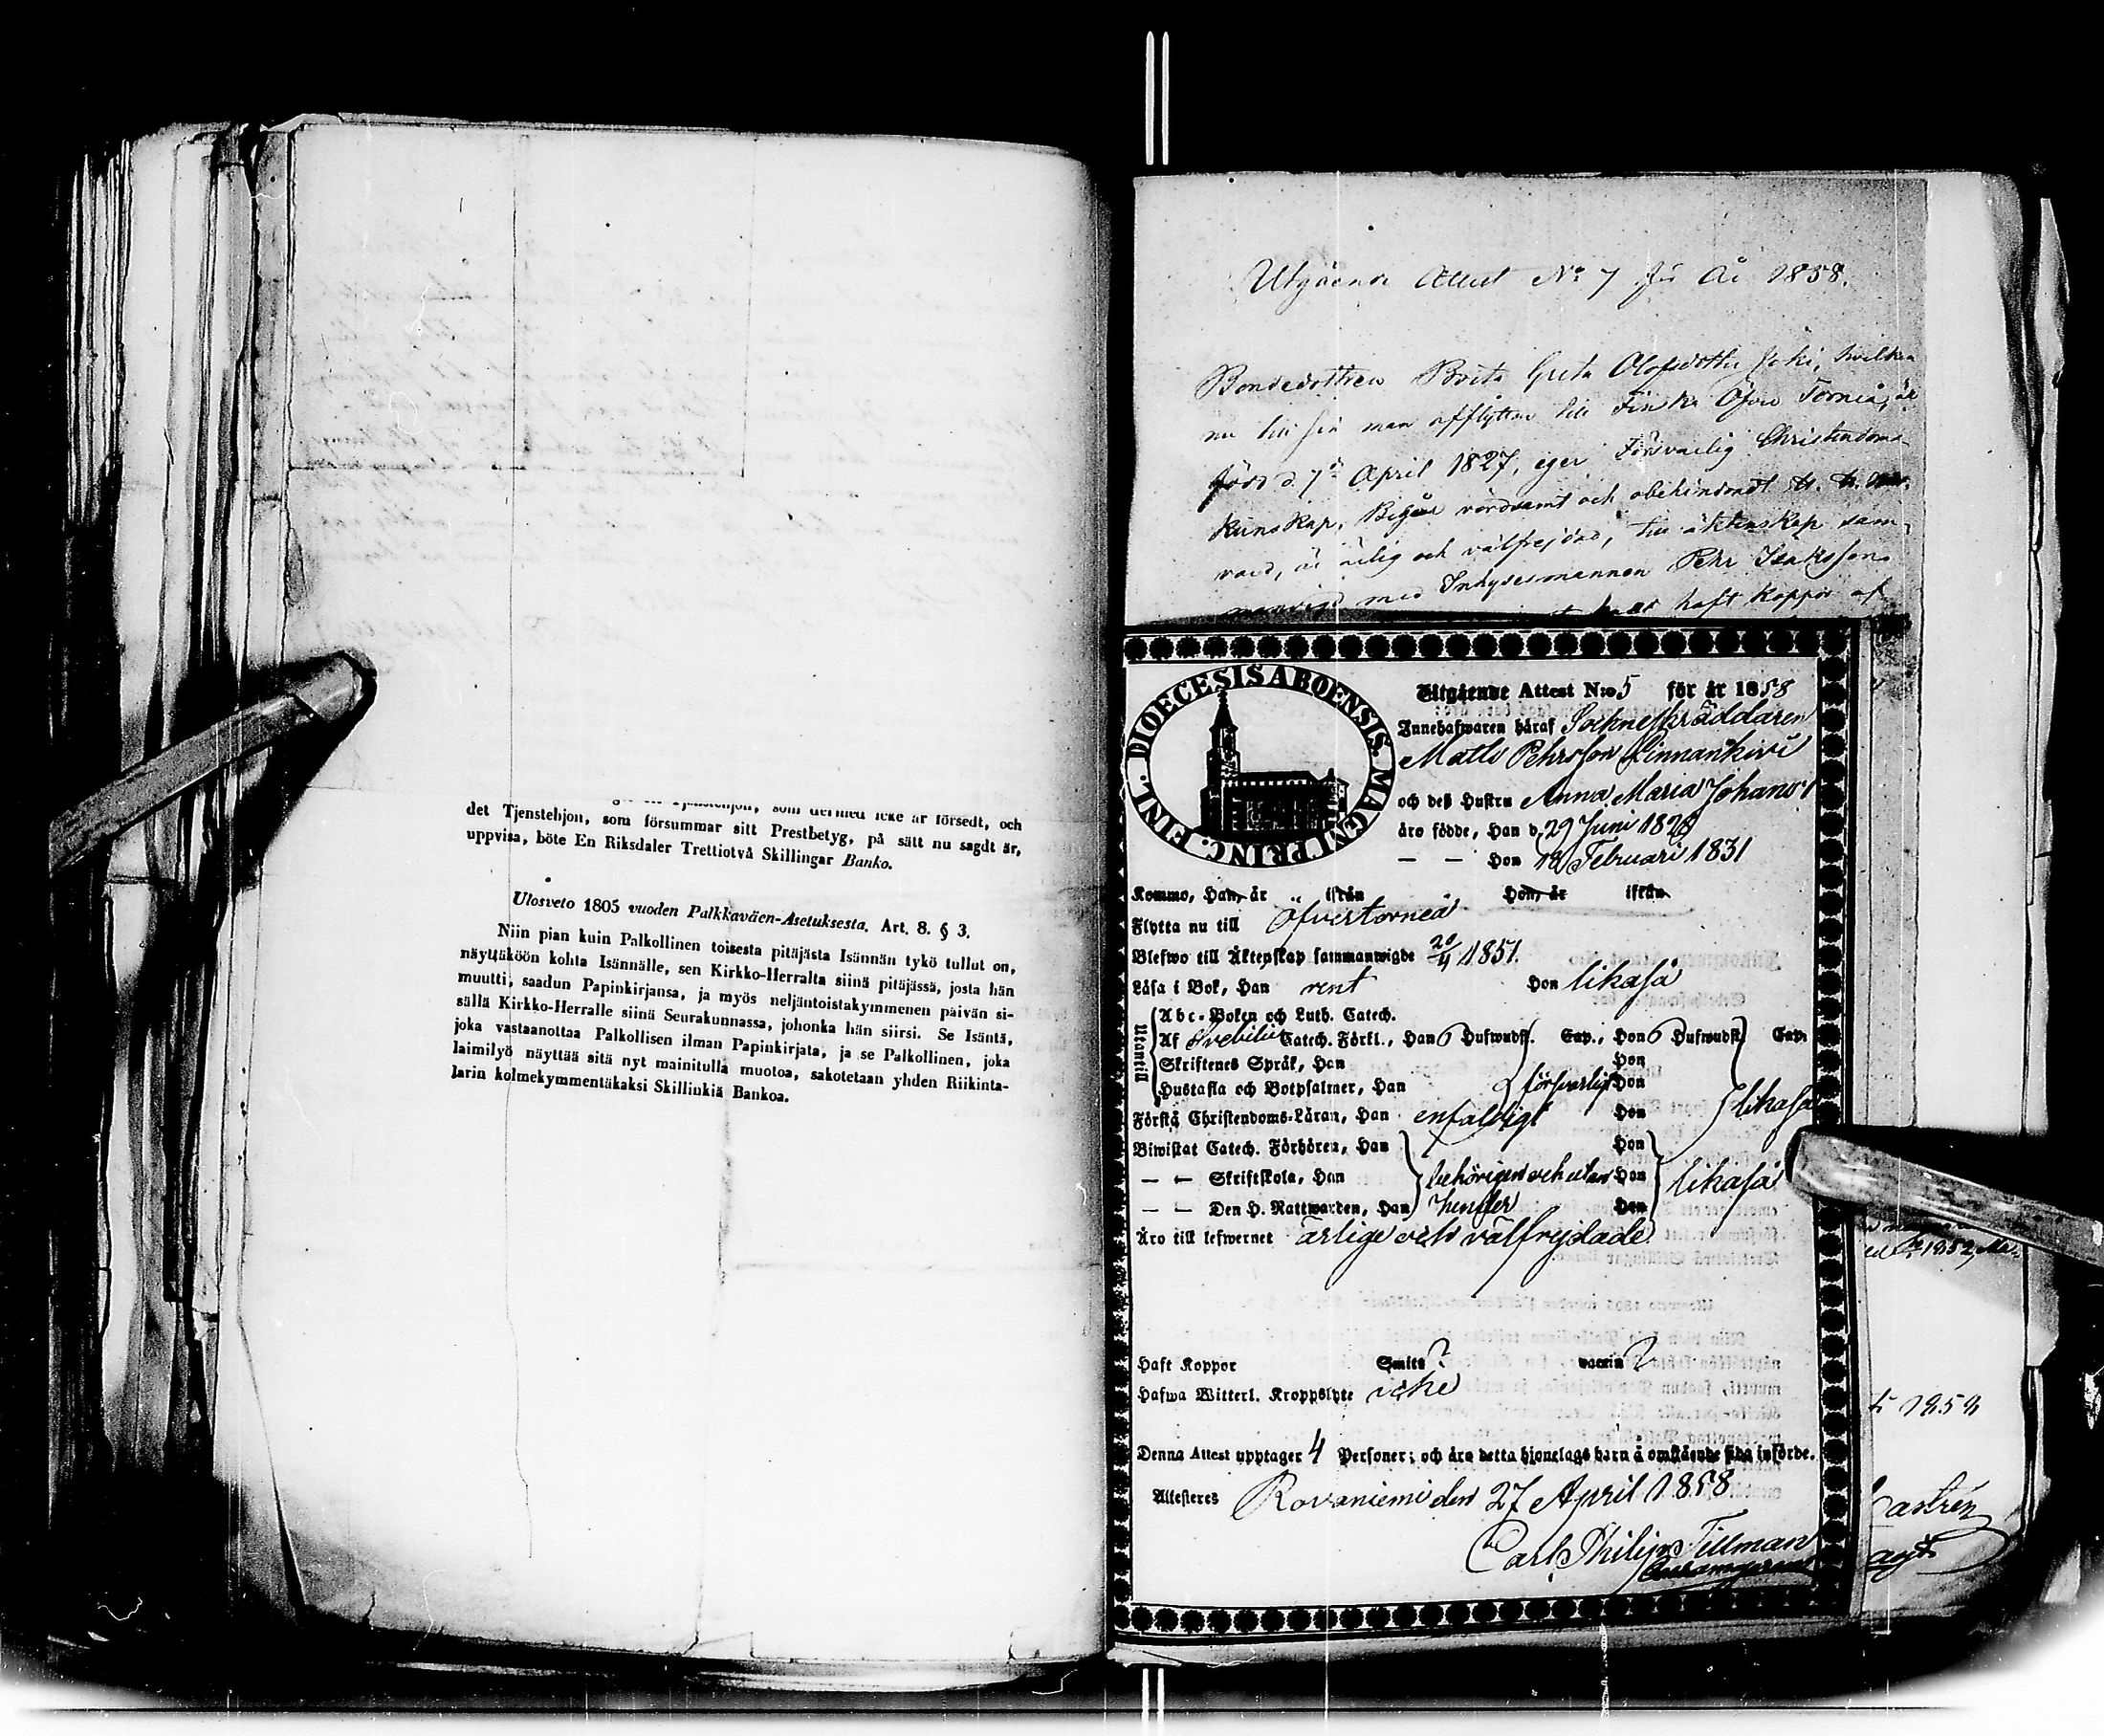 det Tjenstehjon, som försummar sitt Prestbetyg, på sätt nu sagdt är,
uppvisa, böte En Riksdaler Trettiotvå Skillingar Banko.
Ulosveto 1805 vuoden Palkkaväen-Asetuksesta. Art. 8. § 3.
Niin pian kuin Palkollinen toisesta pitäjästa Isännän tykö tullut on,
näyttäköön kohta Isännälle, sen Kirkko-Herralta siinä pitäjässä, josta hän
muutti, saadun Papinkirjansa, ja myös neljäntoistakymmenen päivän si-
sällä Kirkko-Herralle siinä Seurakunnassa, johonka hän siirsi. Se Isäntä,
joka vastaanottaa Palkollisen ilman Papinkirjata, ja se Palkollinen, joka
laimilyö näyttää sitä nyt mainitulla muotoa, sakotetaan yhden Riikinta-
larin kolmekymmentäkaksi Skillinkiä Bankoa.
Utgående Attest No 7 för År 1858.
Bondedottren Brita Greta Olofsdotter Joki, hvilken
nu till sin man afflyttar till Finska Öfver Torneå, är
född d. 7de April 1827, eger Försvarlig Christendoms-
kunskap, Begår vördsamt och obehindradt H. H. Natt-
vard, är ärlig och välfrejdad, till äktenskap sam-
manvigd med Inhysesmannen Pehr Isaksson
haft koppor af
DIOECESIS ABOENSIS. MAGNI PRINC. FINL.
Utgående Attest N:o 5 för år 1858
Innehafwaren häraf Sockneskräddaren
Matts Pehrsson Linnankivi
och deß Hustru Anna Maria Johansd
äro födde, Han d. 29 Juni 1828
— — Hon 18 Februari 1831
Kommo, Han, år ifrån Hon, år ifrån
Flytta nu till Öfvertorneå
Blefwo till Äktenskap sammanwigde 20/4 1851.
Läsa i Bok, Han rent Hon likaså
Utantill
Abc-Boken och Luth. Catech.
Af Svebilii Catech. Förkl., Han 6 Hufwudst. Cap., Hon 6 Hufwudst. Cap.
Skriftenes Språk, Han Hon
Hustafla och Botpsalmer, Han försvarligt Hon
Förstå Christendoms-Läran, Han enfaldigt Hon likaså
Biwistat Catech. Förhören, Han Hon
— — Skriftskola, Han behörigen och utan Hon likaså
— — Den H. Nattwarden, Han hinder Hon
Äro till lefwernet ärlige och välfrejdade
Haft Koppor Smitt ? vaccin ?
Hafwa Witterl. Kroppslyte icke
Denna Attest upptager 4 Personer; och äro detta hjonelags barn å omstående sida införde.
Attesteres Rovaniemi den 27 April 1858
Carl Philip Tillman
ed 1852, Ma-
1858
Castrén